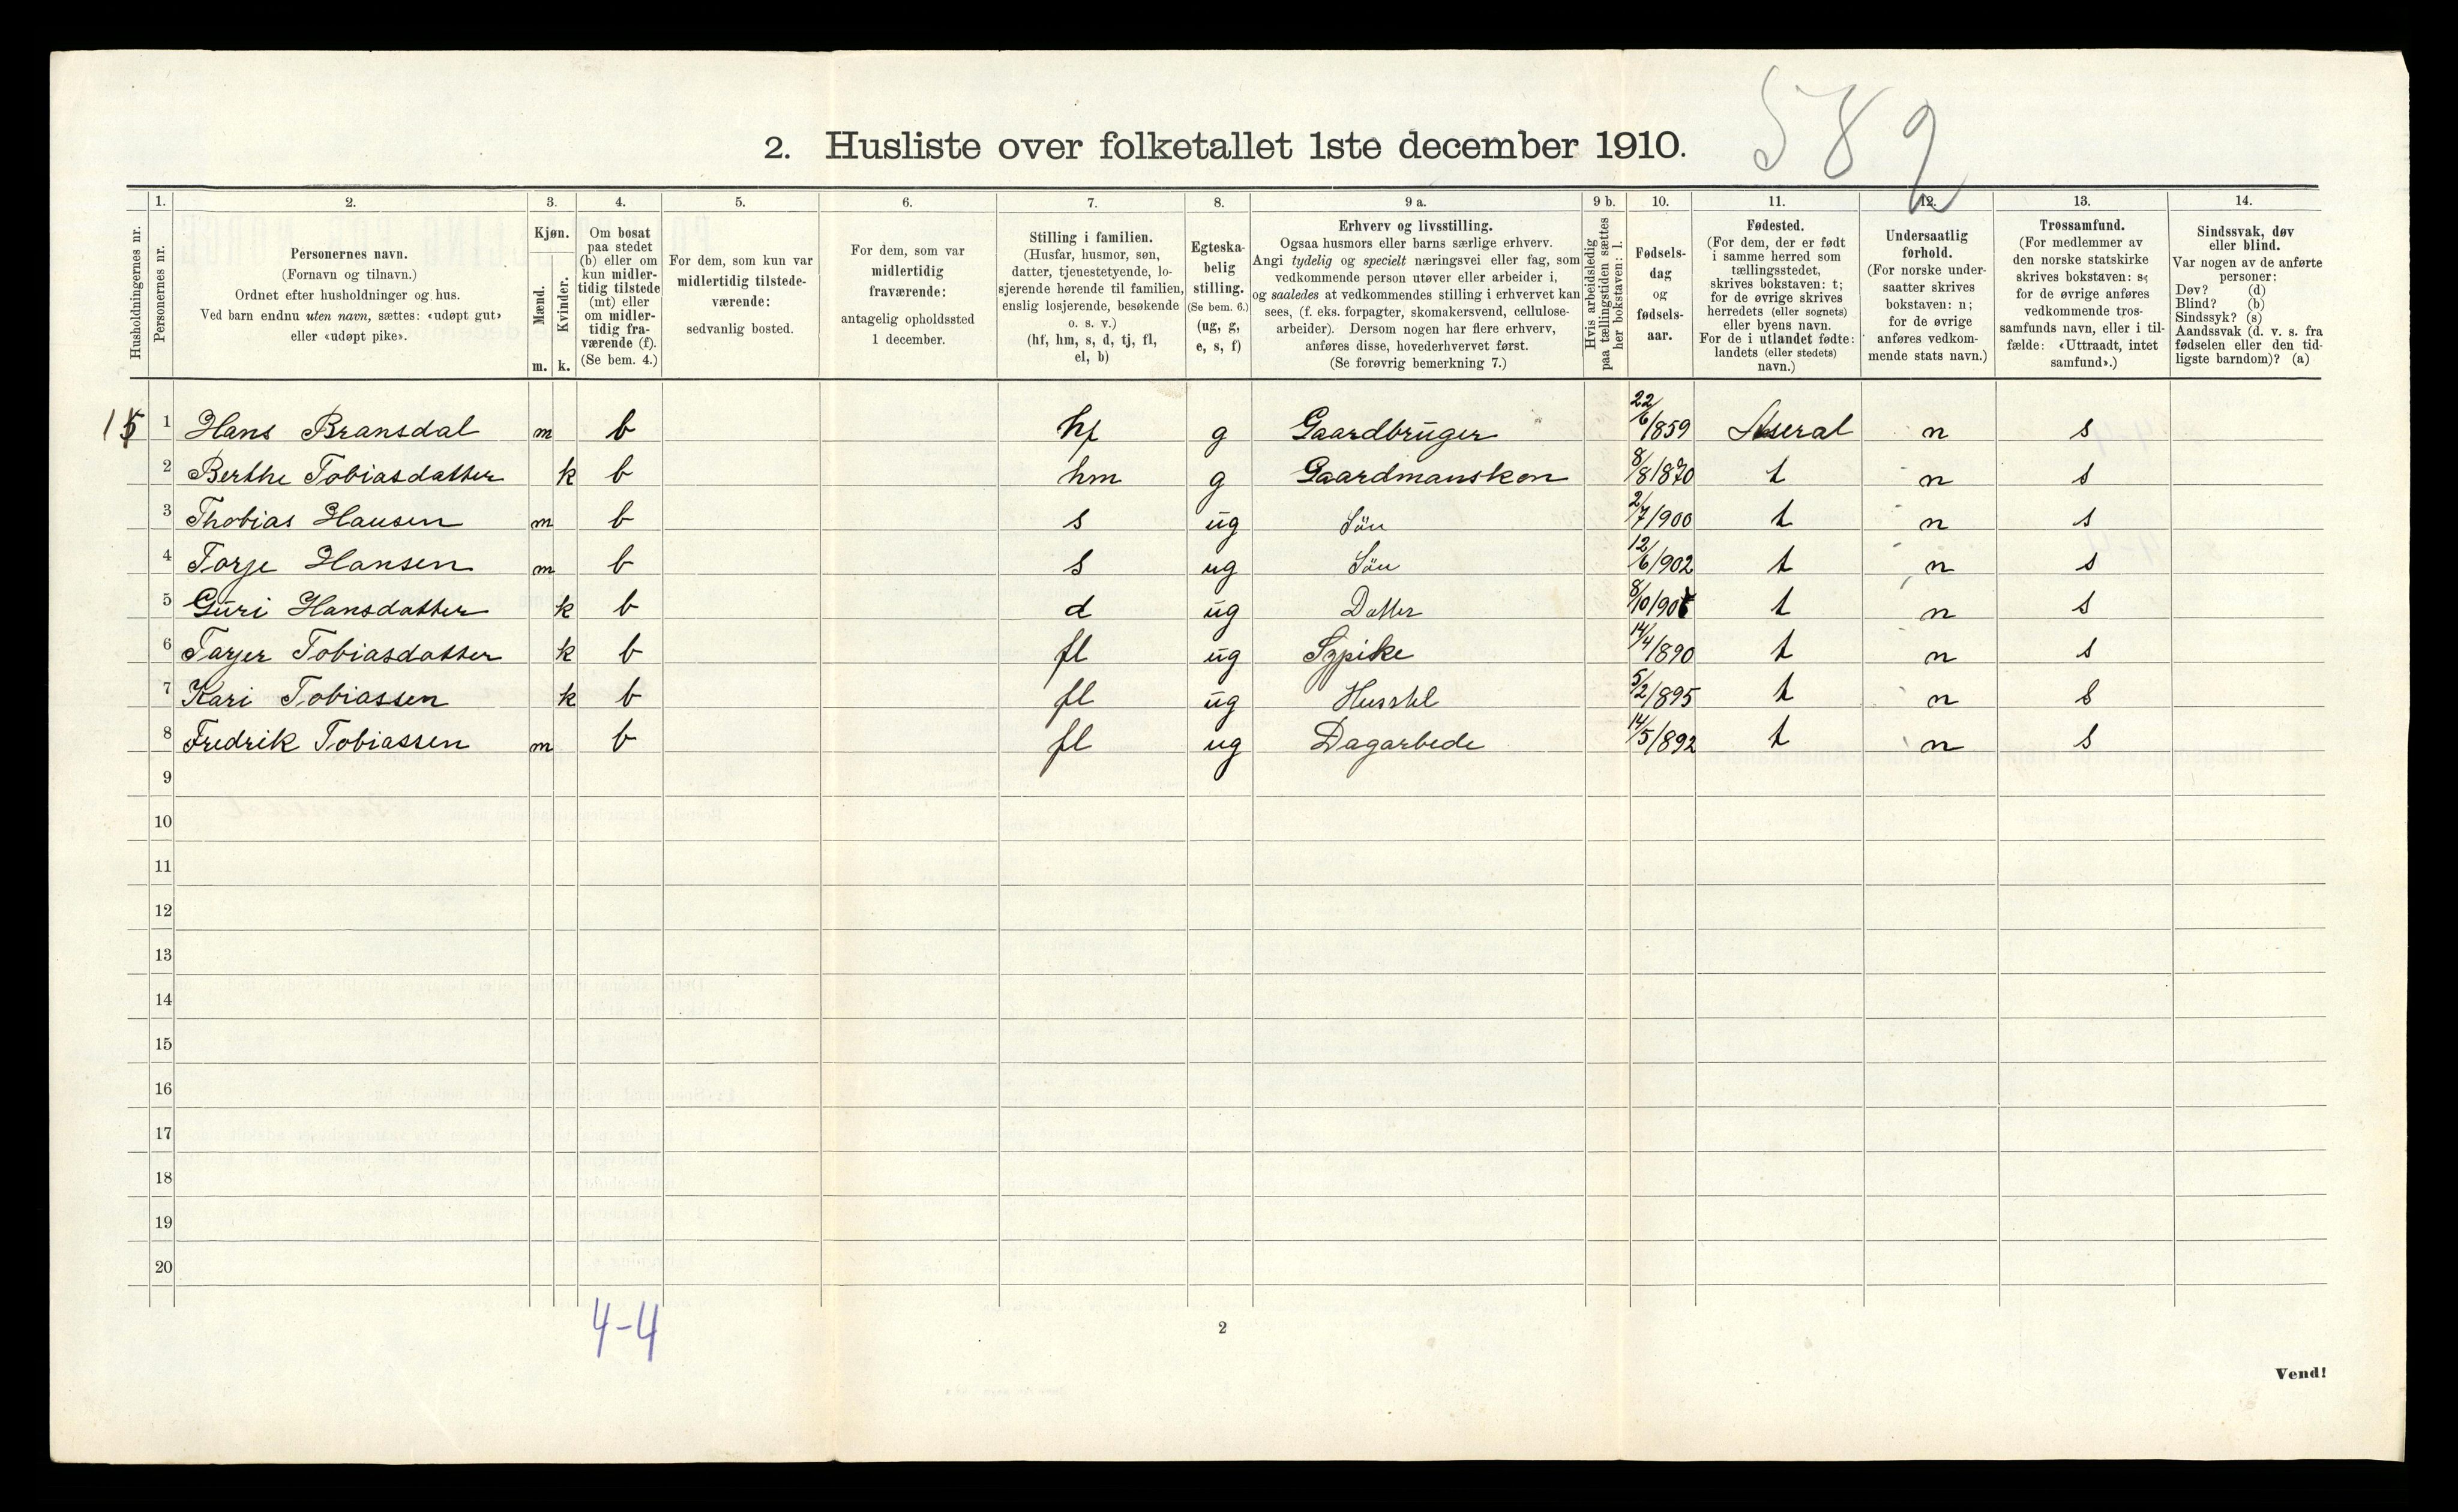 582
2. Husliste over folketallet 1ste december 1910.
Husholdningernes nr.
1.
Personernes nr.
2.
Personernes navn.
(Fornavn og tilnavn.)
Ordnet efter husholdninger og hus.
Ved barn endnu uten navn, sættes: «udøpt gut»
eller «udøpt pike».
3.
Kjøn.
Mænd.
Kvinder.
m. k.
4.
Om bosat
paa stedet
(b) eller om
kun midler-
tidig tilstede
(mt) eller
om midler-
tidig fra-
værende (f).
(Se bem. 4.)
5.
For dem, som kun var
midlertidig tilstede-
værende:
sedvanlig bosted.
6.
For dem, som var
midlertidig
fraværende:
antagelig opholdssted
1 december.
7.
Stilling i familien.
(Husfar, husmor, søn,
datter, tjenestetyende, lo-
sjerende hørende til familien,
enslig losjerende, besøkende
o. s. v.)
(hf, hm, s, d, tj, fl,
el, b)
8.
Egteska-
belig
stilling.
(Se bem. 6.)
(ug, g,
e, s, f)
9 a.
Erhverv og livsstilling.
Ogsaa husmors eller barns særlige erhverv.
Angi tydelig og specielt næringsvei eller fag, som
vedkommende person utøver eller arbeider i,
og saaledes at vedkommendes stilling i erhvervet kan
sees, (f. eks. forpagter, skomakersvend, cellulose-
arbeider). Dersom nogen har flere erhverv,
anføres disse, hovederhvervet først.
(Se forøvrig bemerkning 7.)
9 b.
Hvis arbeidsledig
paa tællingstiden sættes
her bokstaven: l.
10.
Fødsels-
dag
og
fødsels-
aar.
11.
Fødested.
(For dem, der er født
i samme herred som
tællingsstedet,
skrives bokstaven: t;
for de øvrige skrives
herredets (eller sognets)
eller byens navn.
For de i utlandet fødte:
landets (eller stedets)
navn.)
12.
Undersaatlig
forhold.
(For norske under-
saatter skrives
bokstaven: n;
for de øvrige
anføres vedkom-
mende stats navn.)
13.
Trossamfund.
(For medlemmer av
den norske statskirke
skrives bokstaven: s;
for de øvrige anføres
vedkommende tros-
samfunds navn, eller i til-
fælde: «Uttraadt, intet
samfund».)
14.
Sindssvak, døv
eller blind.
Var nogen av de anførte
personer:
Døv? (d)
Blind? (b)
Sindssyk? (s)
Aandssvak (d. v. s. fra
fødselen eller den tid-
ligste barndom)? (a)
1 Hans Bransdal m b hf g Gaardbruger 22/6/859 n s
2 Berthe Tobiasdatter k b hm g Gaardmanskon 8/8/870 t n s
3 Thobias Hansen m b s ug Sön 2/7/900 t n s
4 Torje Hansen m b s ug Sön 12/6/902 t n s
5 Guri Hansdatter k b d ug Datter 8/10/90 t n s
6 Tarjer Tobiasdatter k b fl ug Sypike 14/4/890 t n s
7 Kari Tobiassen k b fl ug Husstel 5/2/895 t n s
8 Fredrik Tobiassen m b fl ug Dagarbede 14/5/892 t n s
9
10
11
12
13
14
15
16
17
18
19
20
4-4
2
Vend!